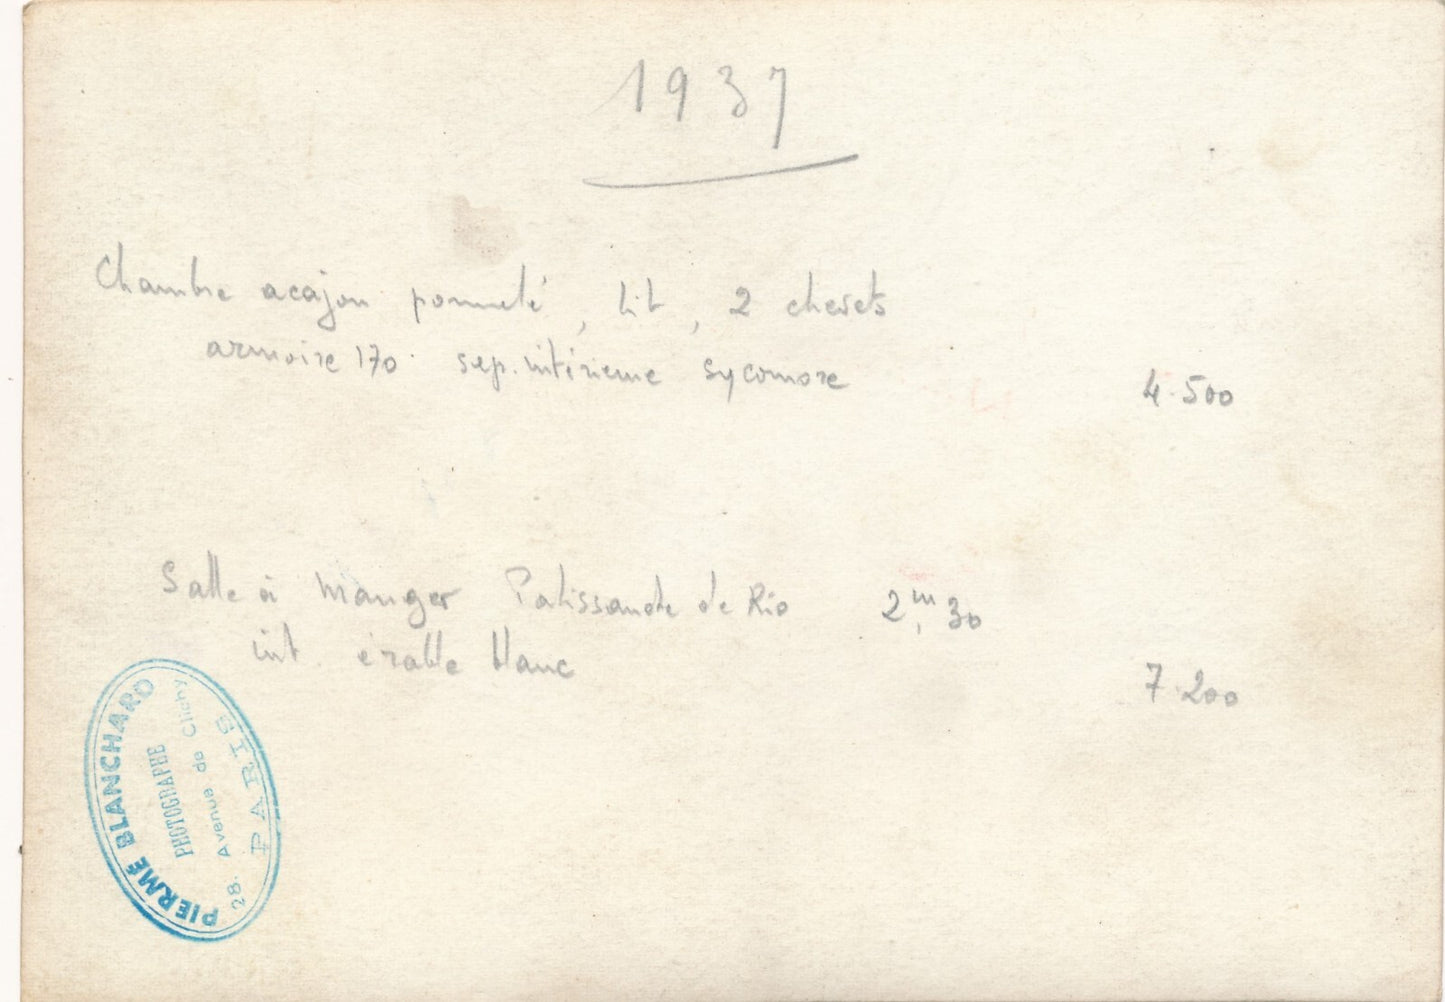 1937
Chambre acajou pommelé, lit, 2 chevets
armoire 170 sep. intérieure sycomore
4.500
Salle à manger Palissandre de Rio 2,m 30
int. érable blanc
7.200
PIERMÉ BLANCHARD
PHOTOGRAPHE
28. Avenue de Clichy
PARIS